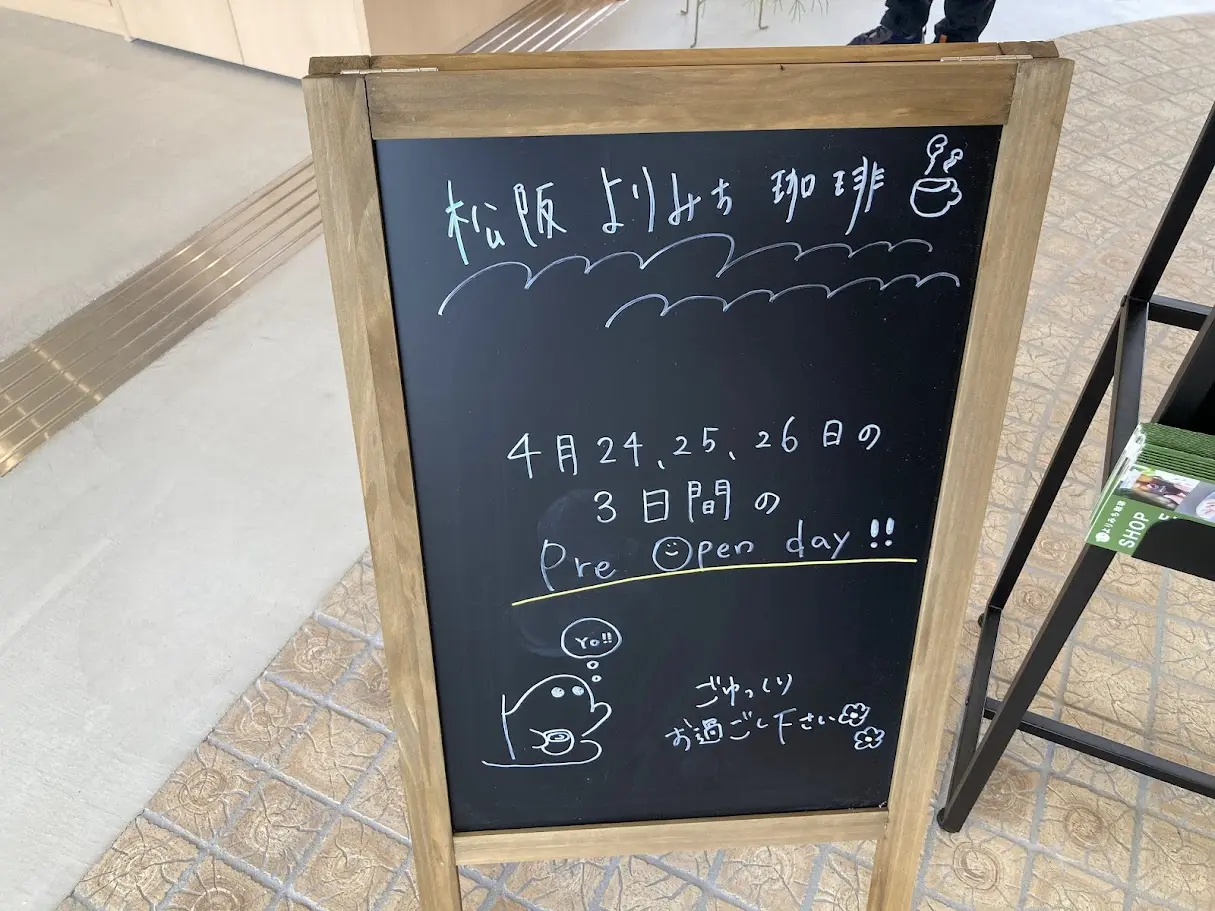 松阪 よりみち 珈琲
4月24、25、26日の
3日間の
Pre Open day!!
Yo!!
ごゆっくり
お過ごし下さい
SHOP